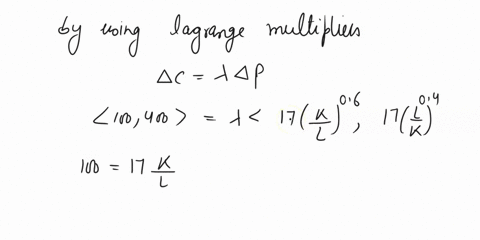 by using lagrange multipliers
ΔC = λ ΔP
<100, 400> = λ < 17(K/L)^0.6, 17(L/K)^0.4
100 = 17 K/L